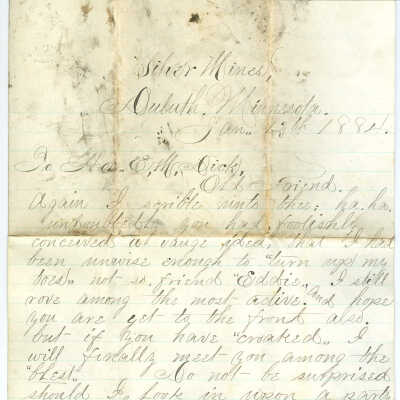 Silver Mines,
Duluth, Minnesota.
Jan. 1884.
To E. M. Dick,
Old Friend.
Again I scrible unto thee; ha. ha.
undoubtedly you had foolishly
conceived a vauge idea, that I had
been unwise enough to "turn up my
toes", not so. friend "Eddie", I still
rove among the most active. and hope
you are yet to the front also.
but if you have "croaked", I
will finally meet you among the
"blest". Do not be surprised
should I, look in upon a party